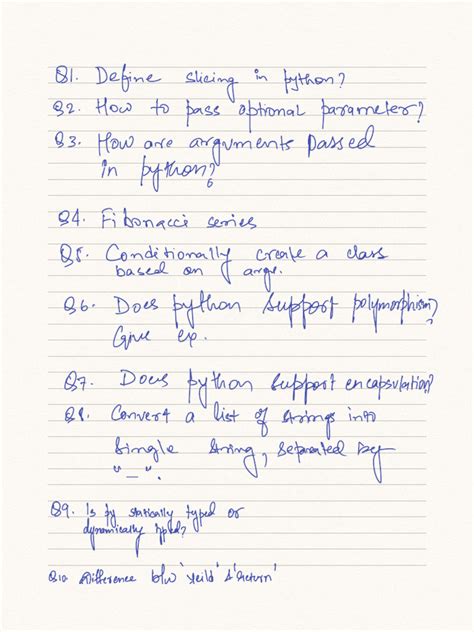 Q1. Define slicing in python?
Q2. How to pass optional parameter?
Q3. How are arguments passed
in python?
Q4. Fibonacci series
Q5. Conditionally create a class
based on args.
Q6. Does python support polymorphism?
Give ex.
Q7. Does python support encapsulation?
Q8. Convert a list of strings into
Single string, separated by
"_".
Q9. Is py statically typed or
dynamically typed?
Q10 Difference b/w 'Yeild' & 'return'